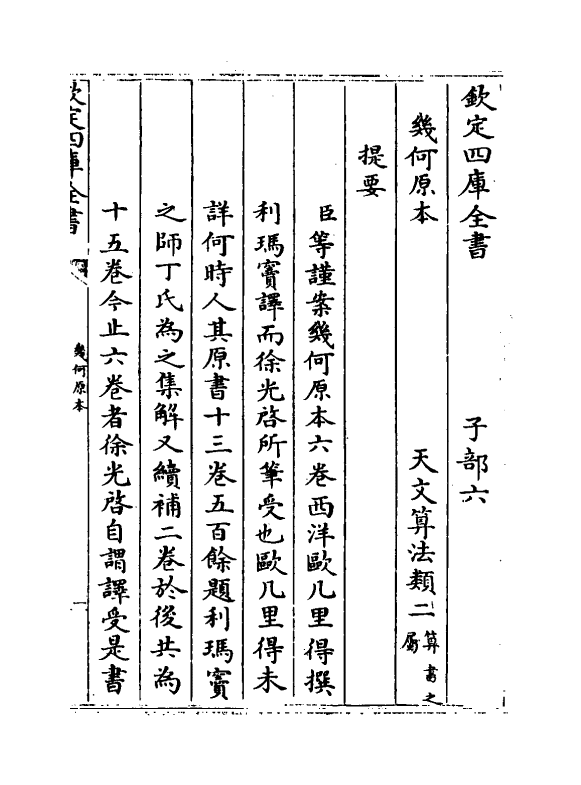 欽定四庫全書　子部六
幾何原本　天文算法類二算書之屬
提要
臣等謹案幾何原本六卷西洋歐几里得撰
利瑪竇譯而徐光啓所筆受也歐几里得未
詳何時人其原書十三卷五百餘題利瑪竇
之師丁氏為之集解又續補二卷於後共為
十五卷今止六卷者徐光啓自謂譯受是書
欽定四庫全書
幾何原本
一